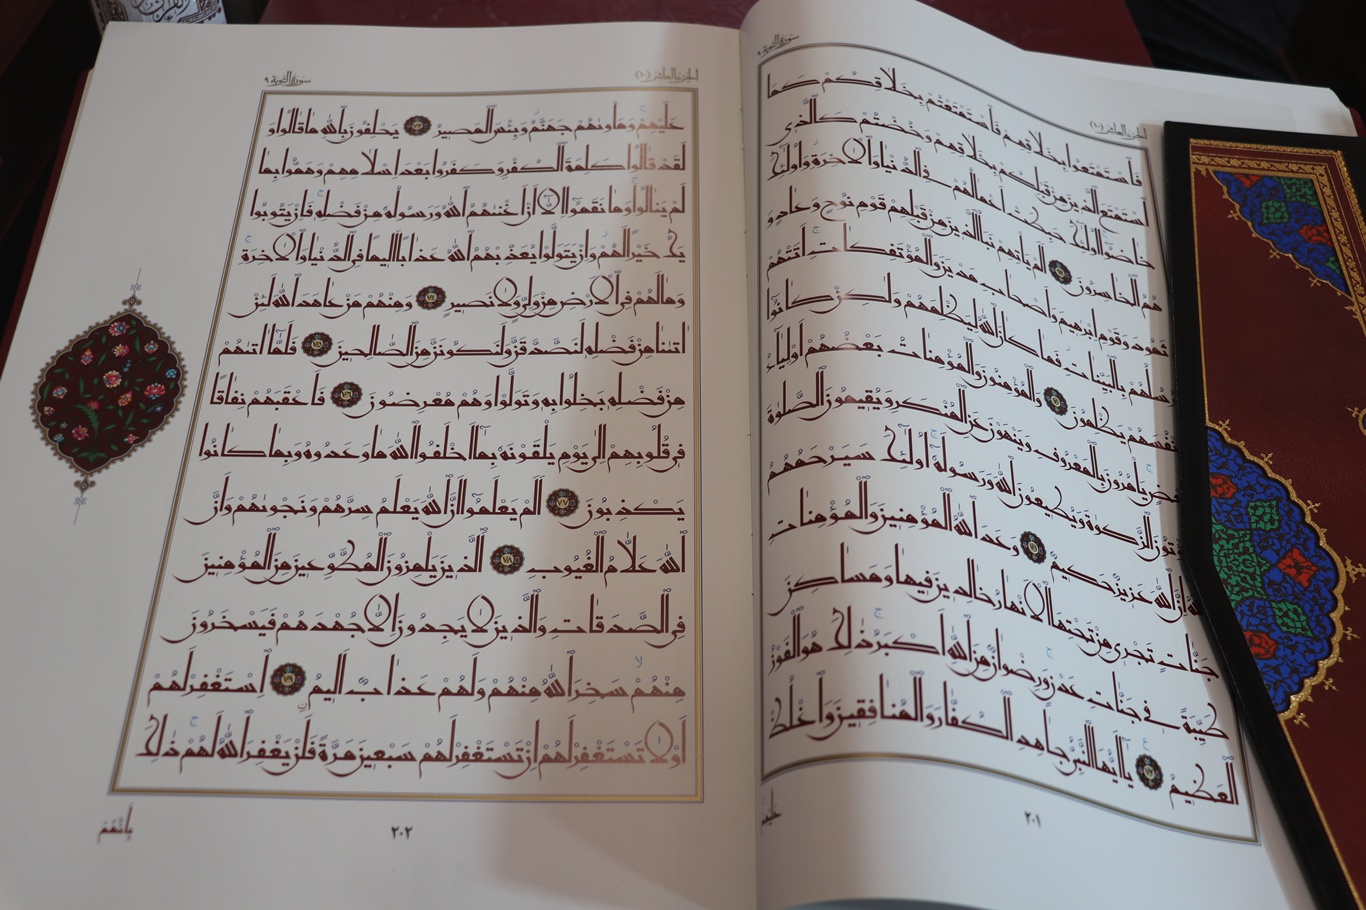 سورة التوبة ٩
الجزء العاشر (١٠)
فَاسْتَمْتَعُوا بِخَلَاقِهِمْ فَاسْتَمْتَعْتُمْ بِخَلَاقِكُمْ كَمَا
اسْتَمْتَعَ الَّذِينَ مِنْ قَبْلِكُمْ بِخَلَاقِهِمْ وَخُضْتُمْ كَالَّذِي
خَاضُوا أُولَٰئِكَ حَبِطَتْ أَعْمَالُهُمْ فِي الدُّنْيَا وَالْآخِرَةِ وَأُولَٰئِكَ
هُمُ الْخَاسِرُونَ ٦٩ أَلَمْ يَأْتِهِمْ نَبَأُ الَّذِينَ مِنْ قَبْلِهِمْ قَوْمِ نُوحٍ وَعَادٍ وَ
ثَمُودَ وَقَوْمِ إِبْرَاهِيمَ وَأَصْحَابِ مَدْيَنَ وَالْمُؤْتَفِكَاتِ أَتَتْهُمْ
رُسُلُهُمْ بِالْبَيِّنَاتِ فَمَا كَانَ اللَّهُ لِيَظْلِمَهُمْ وَلَٰكِنْ كَانُوا
أَنْفُسَهُمْ يَظْلِمُونَ ٧٠ وَالْمُؤْمِنُونَ وَالْمُؤْمِنَاتُ بَعْضُهُمْ أَوْلِيَاءُ
بَعْضٍ يَأْمُرُونَ بِالْمَعْرُوفِ وَيَنْهَوْنَ عَنِ الْمُنْكَرِ وَيُقِيمُونَ الصَّلٰوةَ
وَيُؤْتُونَ الزَّكٰوةَ وَيُطِيعُونَ اللَّهَ وَرَسُولَهُ أُولَٰئِكَ سَيَرْحَمُهُمُ
اللَّهُ إِنَّ اللَّهَ عَزِيزٌ حَكِيمٌ ٧١ وَعَدَ اللَّهُ الْمُؤْمِنِينَ وَالْمُؤْمِنَاتِ
جَنَّاتٍ تَجْرِي مِنْ تَحْتِهَا الْأَنْهَارُ خَالِدِينَ فِيهَا وَمَسَاكِنَ
طَيِّبَةً فِي جَنَّاتِ عَدْنٍ وَرِضْوَانٌ مِنَ اللَّهِ أَكْبَرُ ذَٰلِكَ هُوَ الْفَوْزُ
الْعَظِيمُ ٧٢ يَا أَيُّهَا النَّبِيُّ جَاهِدِ الْكُفَّارَ وَالْمُنَافِقِينَ وَاغْلُظْ
٢٠١
الجزء العاشر (١٠)
سورة التوبة ٩
عَلَيْهِمْ وَمَأْوٰىهُمْ جَهَنَّمُ وَبِئْسَ الْمَصِيرُ ٧٣ يَحْلِفُونَ بِاللَّهِ مَا قَالُوا وَ
لَقَدْ قَالُوا كَلِمَةَ الْكُفْرِ وَكَفَرُوا بَعْدَ إِسْلَامِهِمْ وَهَمُّوا بِمَا
لَمْ يَنَالُوا وَمَا نَقَمُوا إِلَّا أَنْ أَغْنٰىهُمُ اللَّهُ وَرَسُولُهُ مِنْ فَضْلِهِ فَإِنْ يَتُوبُوا
يَكُ خَيْرًا لَهُمْ وَإِنْ يَتَوَلَّوْا يُعَذِّبْهُمُ اللَّهُ عَذَابًا أَلِيمًا فِي الدُّنْيَا وَالْآخِرَةِ
وَمَا لَهُمْ فِي الْأَرْضِ مِنْ وَلِيٍّ وَلَا نَصِيرٍ ٧٤ وَمِنْهُمْ مَنْ عَاهَدَ اللَّهَ لَئِنْ
آتٰنَا مِنْ فَضْلِهِ لَنَصَّدَّقَنَّ وَلَنَكُونَنَّ مِنَ الصَّالِحِينَ ٧٥ فَلَمَّا آتٰىهُمْ
مِنْ فَضْلِهِ بَخِلُوا بِهِ وَتَوَلَّوْا وَهُمْ مُعْرِضُونَ ٧٦ فَأَعْقَبَهُمْ نِفَاقًا
فِي قُلُوبِهِمْ إِلَىٰ يَوْمِ يَلْقَوْنَهُ بِمَا أَخْلَفُوا اللَّهَ مَا وَعَدُوهُ وَبِمَا كَانُوا
يَكْذِبُونَ ٧٧ أَلَمْ يَعْلَمُوا أَنَّ اللَّهَ يَعْلَمُ سِرَّهُمْ وَنَجْوٰىهُمْ وَأَنَّ
اللَّهَ عَلَّامُ الْغُيُوبِ ٧٨ الَّذِينَ يَلْمِزُونَ الْمُطَّوِّعِينَ مِنَ الْمُؤْمِنِينَ
فِي الصَّدَقَاتِ وَالَّذِينَ لَا يَجِدُونَ إِلَّا جُهْدَهُمْ فَيَسْخَرُونَ
مِنْهُمْ سَخِرَ اللَّهُ مِنْهُمْ وَلَهُمْ عَذَابٌ أَلِيمٌ ٧٩ اسْتَغْفِرْ لَهُمْ
أَوْ لَا تَسْتَغْفِرْ لَهُمْ إِنْ تَسْتَغْفِرْ لَهُمْ سَبْعِينَ مَرَّةً فَلَنْ يَغْفِرَ اللَّهُ لَهُمْ ذَٰلِكَ
بِأَنَّهُمْ
٢٠٢